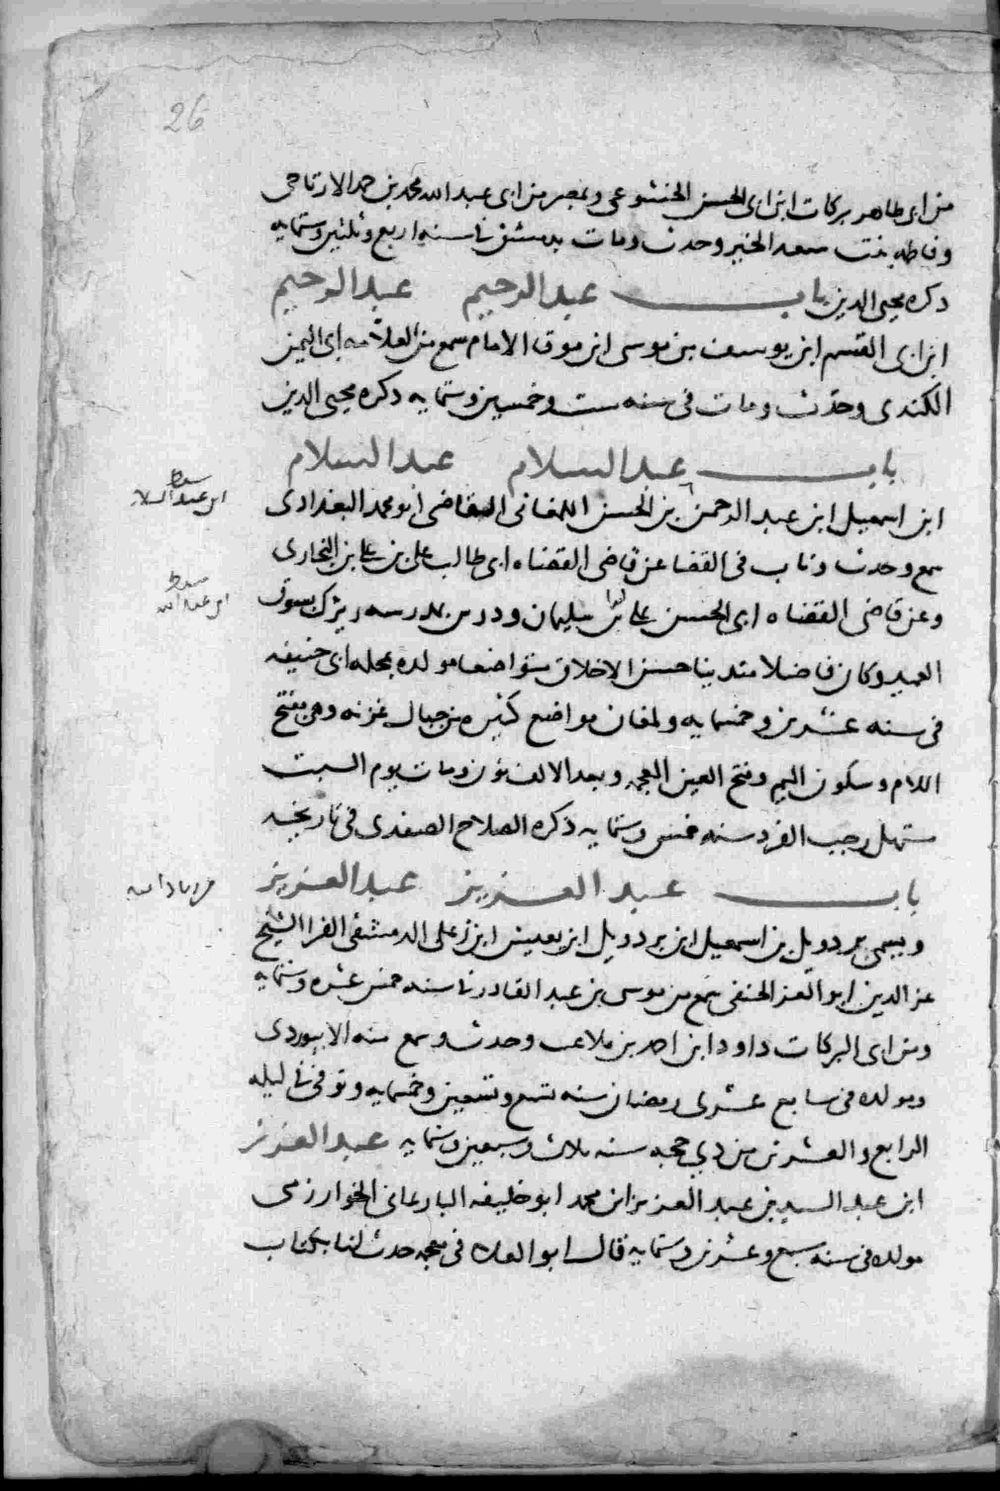 26
من ابى طاهر بركات ابن ابى الحسن الخشوعى وبمصر من ابى عبد الله محمد بن حمد الارتاحى
وفاطمه بنت سعد الخير وحدث ومات بدمشق فى سنه اربع وثلثين وستمايه
ذكره محيى الدين باب عبد الرحيم عبد الرحيم
ابن ابى القسم ابن يوسف بن موسى ابن موقا الامام سمع من العلامه ابى اليمن
الكندى وحدث ومات فى سنه ست وخمسين وستمايه ذكره محيى الدين
باب عبد السلام عبد السلام
ابن اسمعيل ابن عبد الرحمن بن الحسن اللمغانى القاضى ابو محمد البغدادى
سمع وحدث وناب فى القضا عن قاضى القضاه ابى طالب على بن على ابن البخارى
وعن قاضى القضاه ابى الحسن على بن سليمان ودرس بمدرسه زيرك بسوق
العميد وكان فاضلا متدينا حسن الاخلاق متواضعا مولده بمحله ابى حنيفه
فى سنه عشرين وخمسمايه ولمغان مواضع كثيره من جبال غزنه وهى بفتح
اللام وسكون الميم وفتح الغين المعجمه وبعد الالف نون ومات يوم السبت
مستهل رجب الفرد سنه خمس وستمايه ذكره الصلاح الصفدى فى تاريخه
باب عبد العزيز عبد العزيز
ويسمى بردويل بن اسمعيل ابن بردويل ابن يعيش ابن على الدمشقى الفرا الشيخ
عز الدين ابو العز الحنفى سمع من موسى بن عبد القادر فى سنه خمس عشره وستمايه
ومن ابى البركات داود ابن احمد بن ملاعب وحدث وسمع منه الابيوردى
ومولده فى سابع عشرى رمضان سنه تسع وتسعين وخمسمايه وتوفى فى ليله
الرابع والعشرين من ذي حجه سنه ثلاث وسبعين وستمايه عبد العزيز
ابن عبد السيد بن عبد العزيز ابن محمد ابو خليفه الخوارزمى
مولده فى سنه سبع وعشرين وستمايه قال ابو العلاء فى معجمه حدث لنا بكتاب
ابن عبد السلام